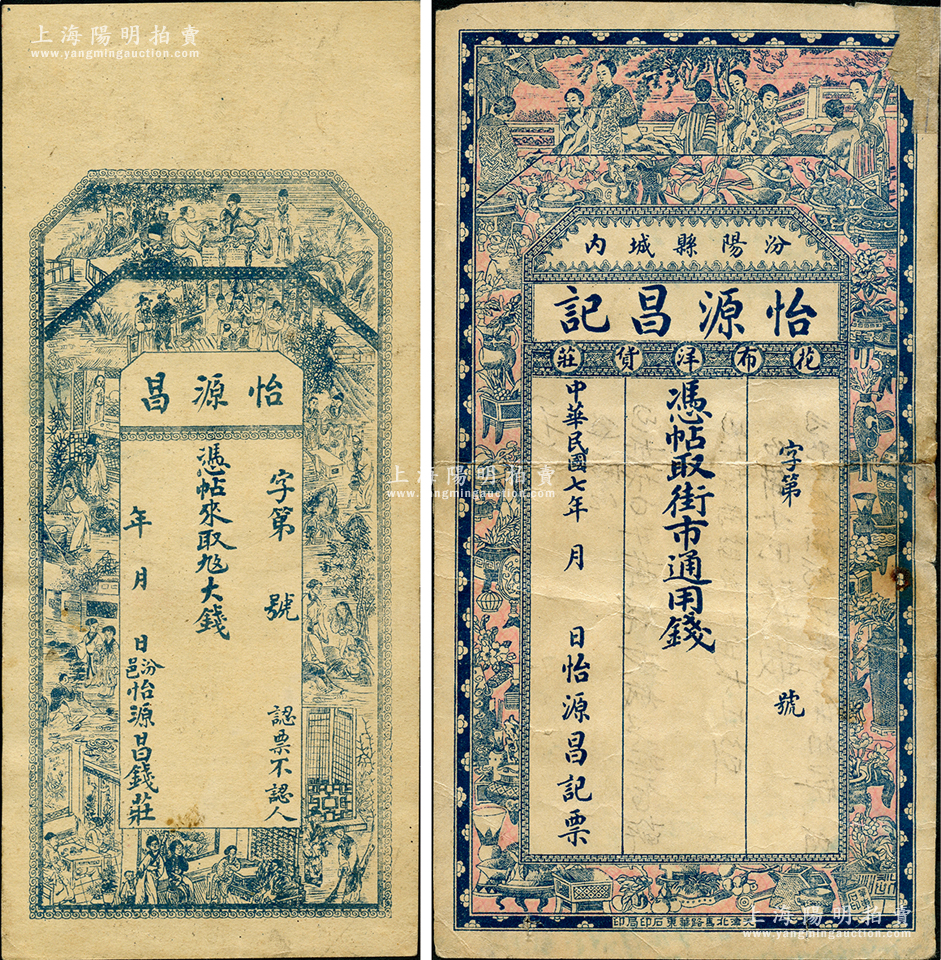 上海陽明拍賣
www.yangmingauction.com
怡源昌
字第 號 認票不認人
憑帖來取大錢
年 月 日 汾邑怡源昌錢莊
汾陽縣城內
怡源昌記
花布洋貨莊
字第 號
憑帖取街市通用錢
中華民國七年 月 日怡源昌記票
天津北馬路華東石印局印
上海陽明拍賣
www.yangmingauction.com
上海陽明拍賣
www.yangmingauction.com